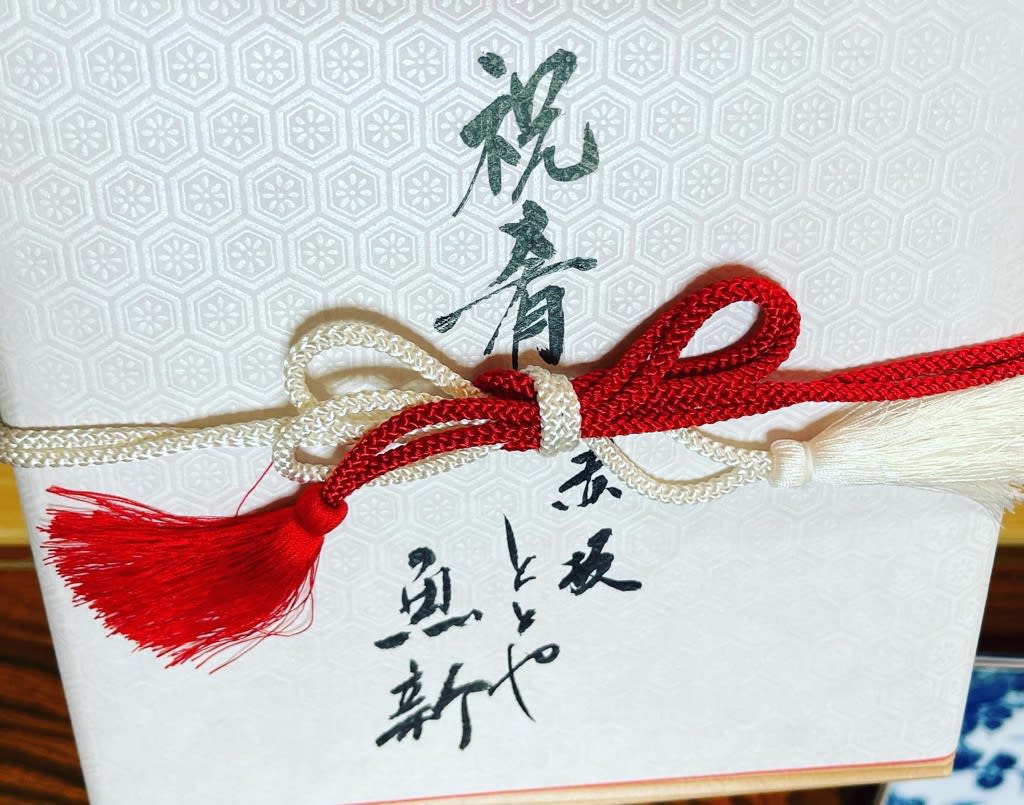 祝肴
赤坂
ととや
魚新